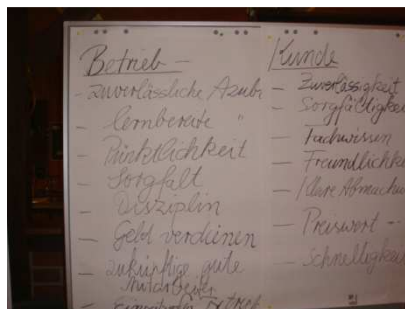 Betrieb –
– Zuverlässliche Azubi
– lernbereite "
– Pünktlichkeit
– Sorgfalt
– Disziplin
– Geld verdienen
– zukünftige gute
Mitarbeiter
Betrieb
Kunde
– Zuverlässigkeit
– Sorgfältigkei
– Fachwissen
– Freundlichke
– Klare Abmachu
– Preiswert --
– Schnelligkei